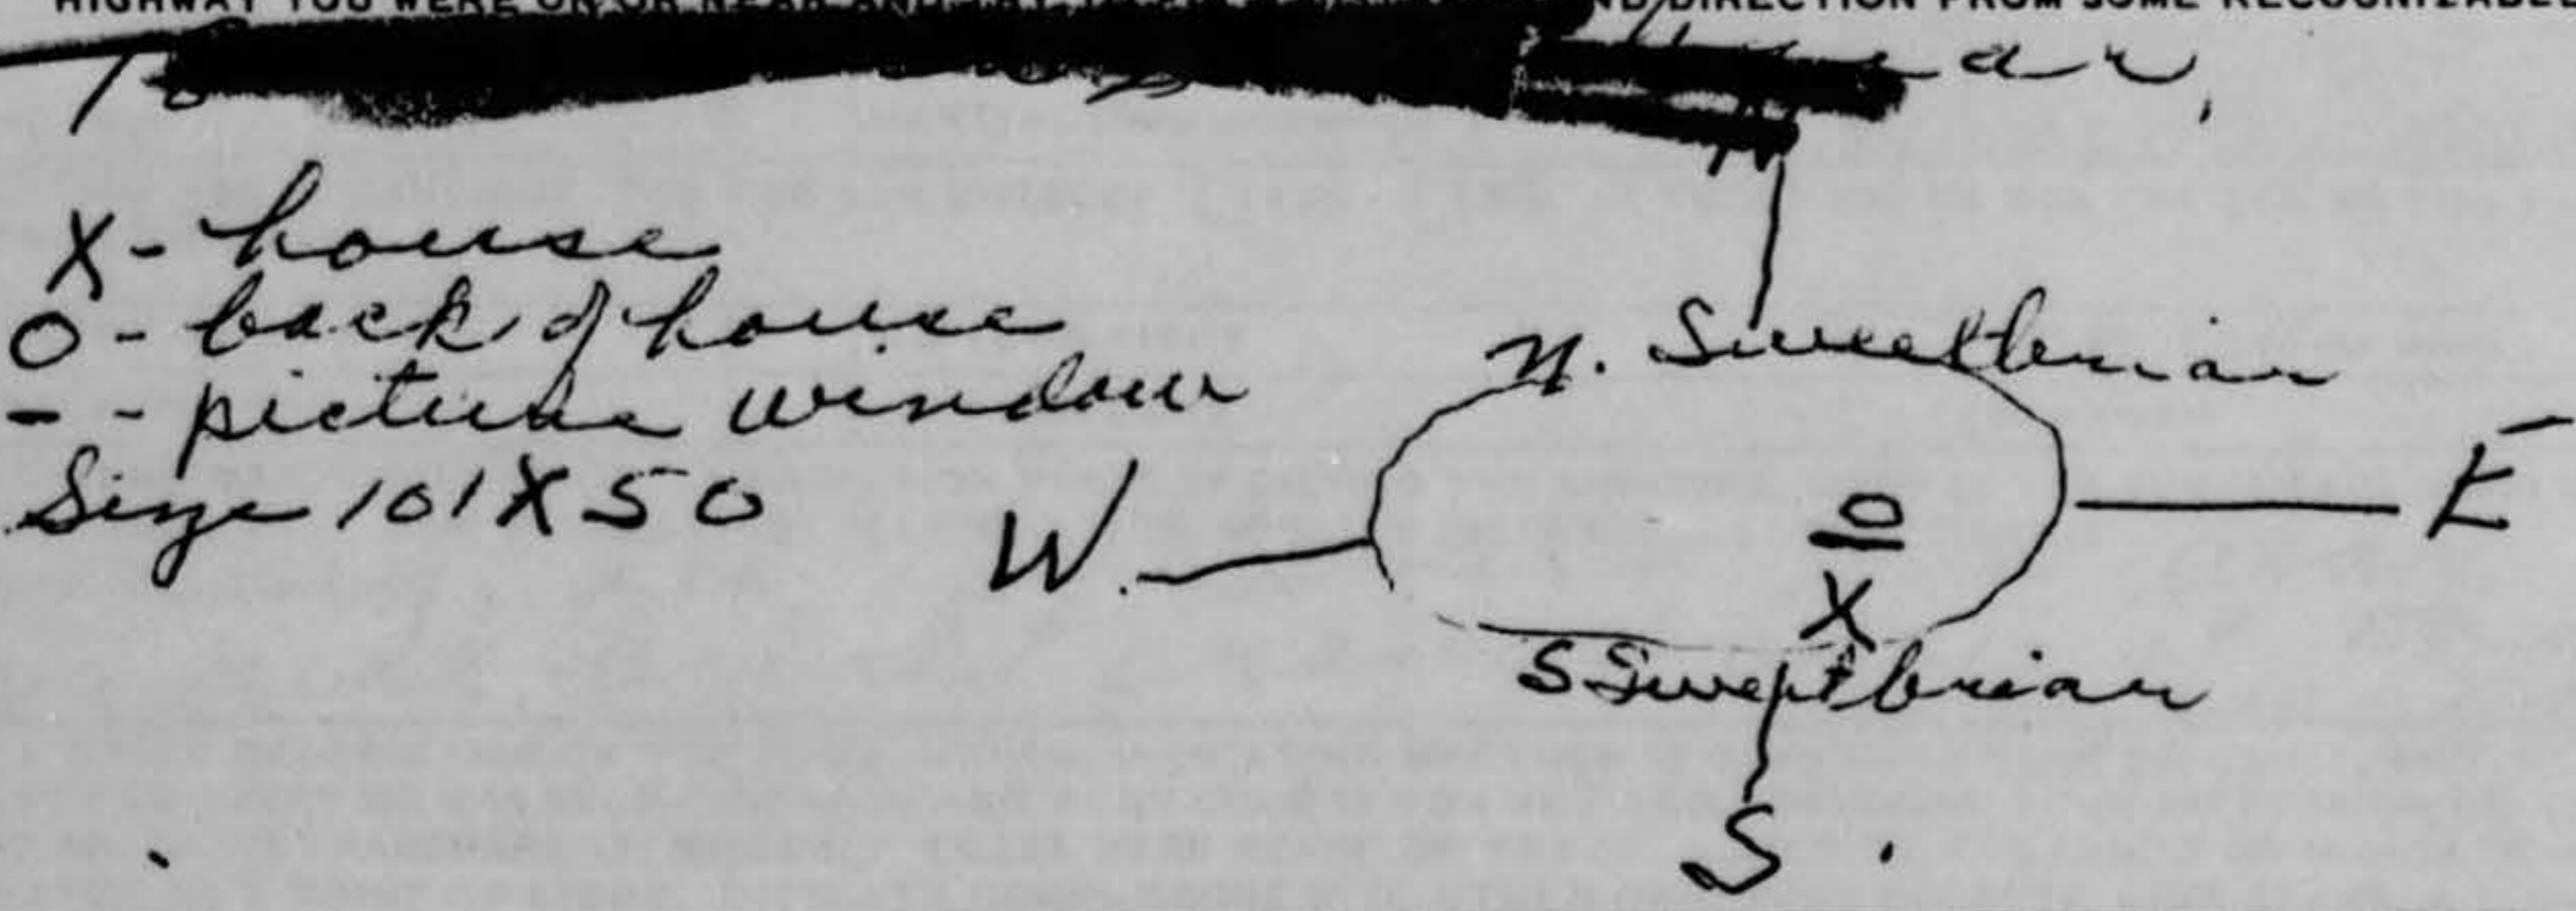 HIGHWAY YOU WERE ON OR NEAR AND DIRECTION FROM SOME RECOGNIZABLE
To
N
X - house
O - back of house
- - picture window
Size 101 X 50
N. Sweetbriar
W.
E
O
X
S Sweetbriar
S.